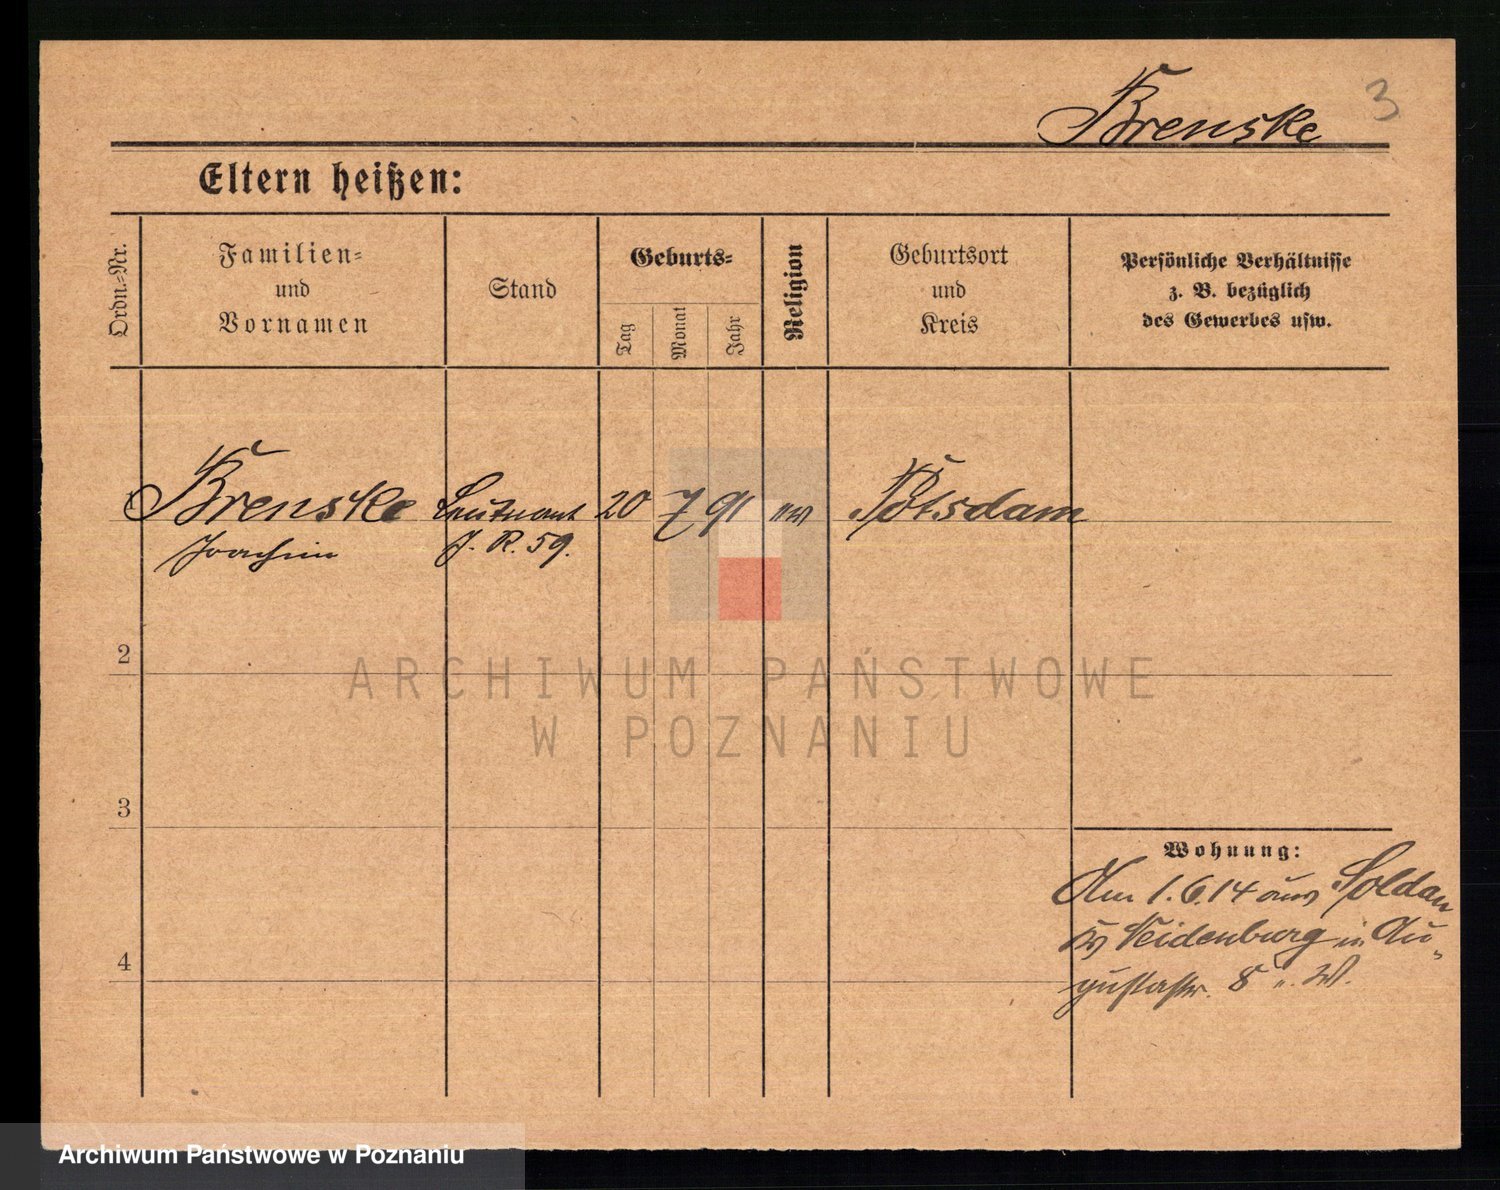 Brenske 3
Eltern heißen:
Ordn.=Nr.
Familien=
und
Vornamen
Stand
Geburts=
Tag
Monat
Jahr
Religion
Geburtsort
und
Kreis
Persönliche Verhältnisse
z. B. bezüglich
des Gewerbes usw.
1 Brenske Leutnant 20 7 91 ev Potsdam
Joachim J. R. 59.
2
3
4
Wohnung:
Am 1.6.14 aus Soldau
Kr Neidenburg in Au-
gustastr. 8 b. W.
ARCHIWUM PAŃSTWOWE
W POZNANIU
Archiwum Państwowe w Poznaniu